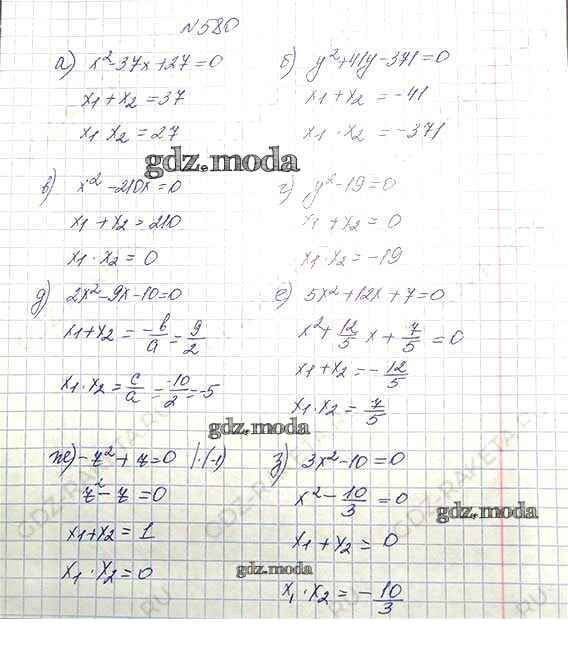 N 580
а) x² - 37x + 27 = 0
x₁ + x₂ = 37
x₁ x₂ = 27
б) y² + 41y - 371 = 0
x₁ + x₂ = -41
x₁ · x₂ = -371
gdz.moda
в) x² - 210x = 0
x₁ + x₂ = 210
x₁ · x₂ = 0
г) y² - 19 = 0
x₁ + x₂ = 0
x₁ · x₂ = -19
д) 2x² - 9x - 10 = 0
x₁ + x₂ = -b/a = 9/2
x₁ · x₂ = c/a = -10/2 = -5
е) 5x² + 12x + 7 = 0
x² + 12/5 x + 7/5 = 0
x₁ + x₂ = -12/5
x₁ · x₂ = 7/5
gdz.moda
ж) -z² + z = 0 |·(-1)
z² - z = 0
x₁ + x₂ = 1
x₁ · x₂ = 0
з) 3x² - 10 = 0
x² - 10/3 = 0
gdz.moda
x₁ + x₂ = 0
gdz.moda
x₁ · x₂ = -10/3
GDZ-RAKETA.RU
GDZ-RAKETA.RU